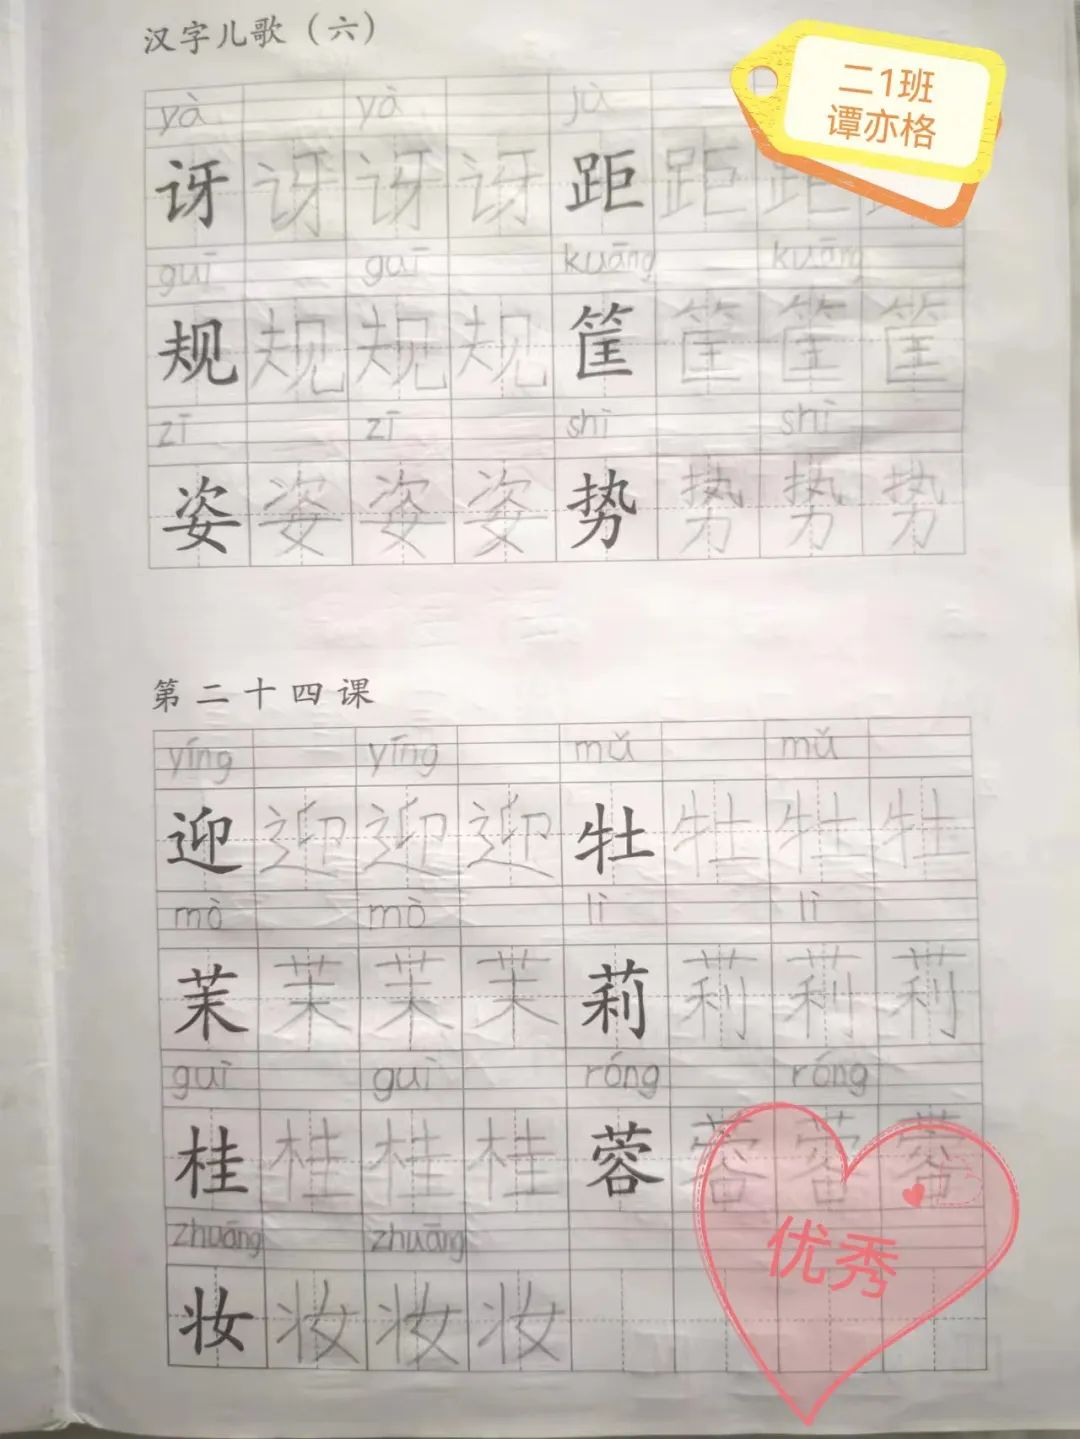 汉字儿歌（六）
二1班
谭亦格
yà yà jù
讶 讶 讶 讶 距 距 距
guī guī kuāng kuāng
规 规 规 规 筐 筐 筐 筐
zī zī shì shì
姿 姿 姿 姿 势 势 势 势
第二十四课
yíng yíng mǔ mǔ
迎 迎 迎 迎 牡 牡 牡 牡
mò mò lì lì
茉 茉 茉 茉 莉 莉 莉 莉
guì guì róng róng
桂 桂 桂 桂 蓉 蓉 蓉 蓉
zhuāng zhuāng
妆 妆 妆 妆
优秀